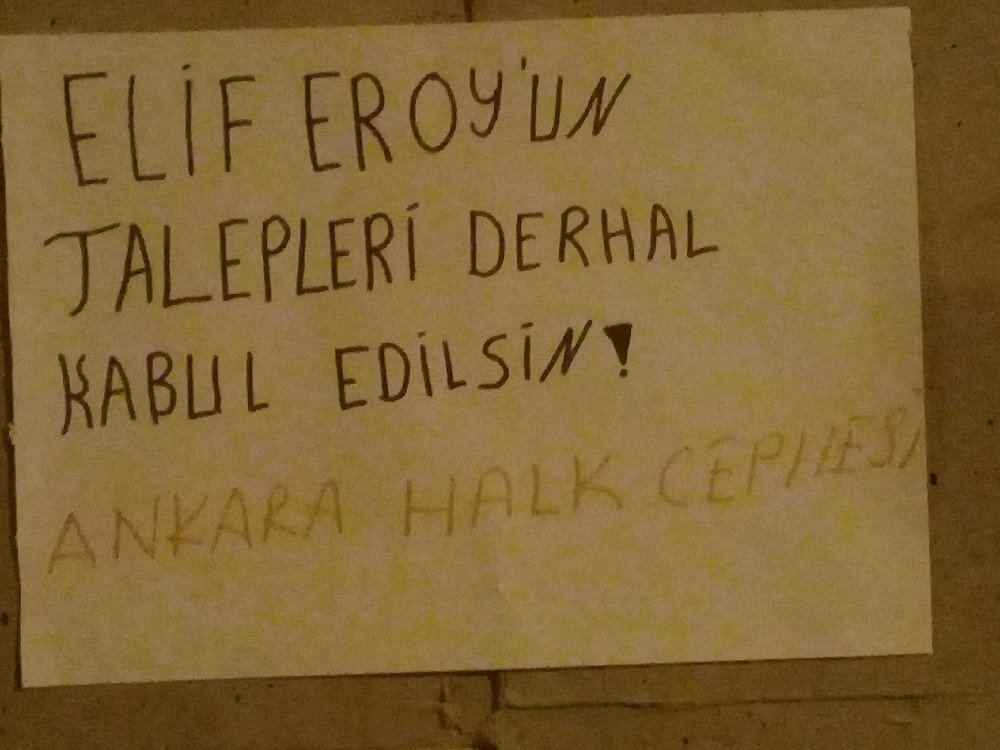 ELİF EROY'UN
TALEPLERİ DERHAL
KABUL EDİLSİN!
ANKARA HALK CEPHESİ